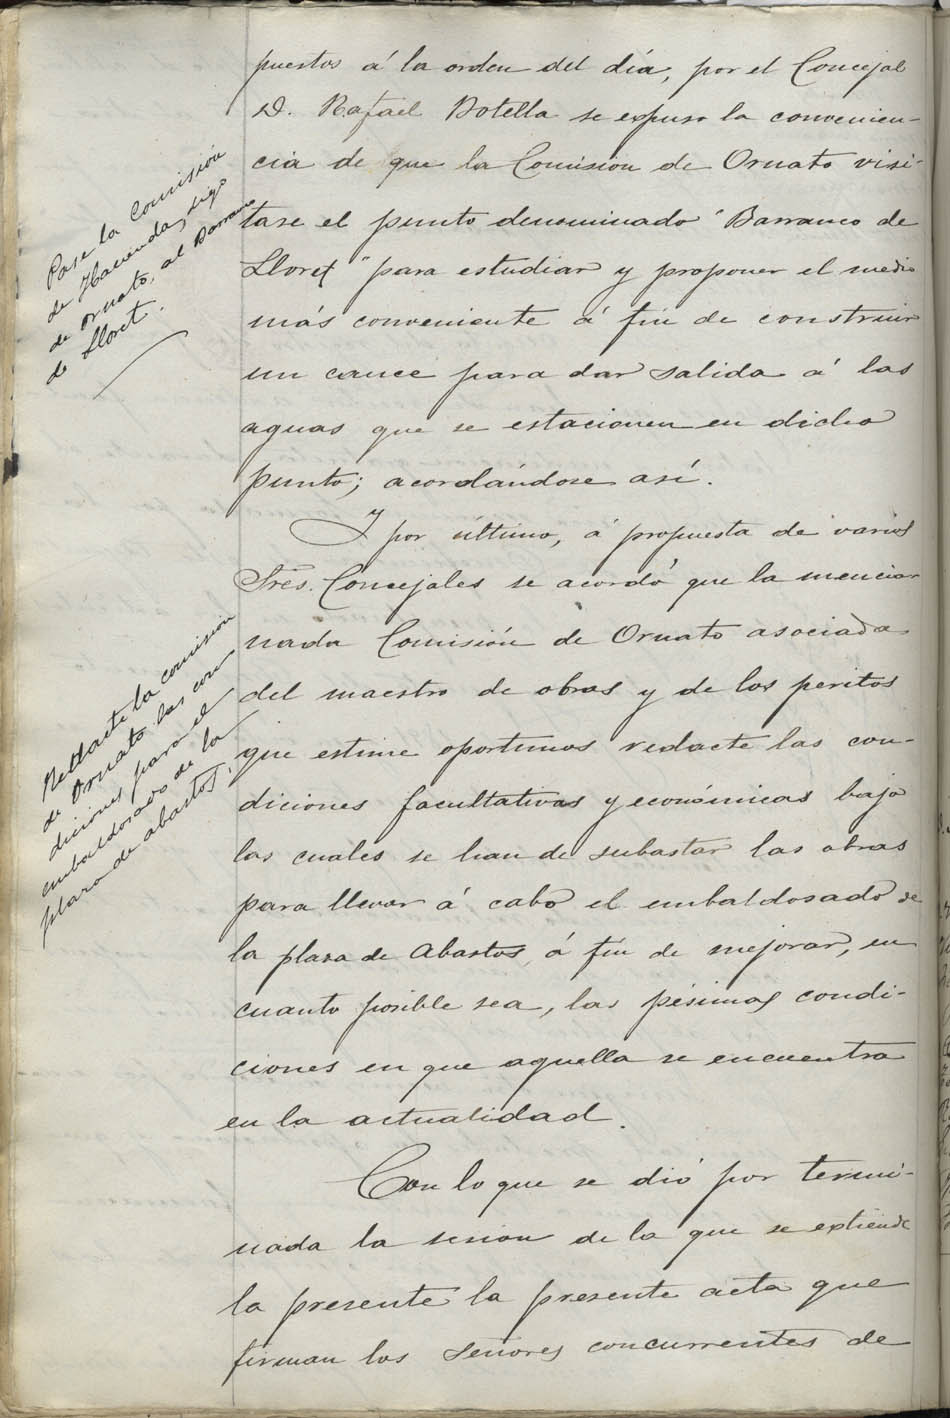 puestos á la orden del día, por el Concejal
D. Rafael Botella se expuso la convenien-
cia de que la Comisión de Ornato visi-
tase el punto denominado "Barranco de
Lloret" para estudiar y proponer el medio
más conveniente á fin de construir
un cauce para dar salida á las
aguas que se estacionen en dicho
punto; acordándose así.
Pase la Comisión
de Hacienda, digo
de Ornato, al Barranco
de Lloret.
Y por último, á propuesta de varios
Sres. Concejales se acordó que la mencio-
nada Comisión de Ornato asociada
del maestro de obras y de los peritos
que estime oportunos redacte las con-
diciones facultativas y económicas bajo
las cuales se han de subastar las obras
para llevar á cabo el embaldosado de
la plaza de Abastos, á fin de mejorar, en
cuanto posible sea, las pésimas condi-
ciones en que aquella se encuentra
en la actualidad.
Redacte la comisión
de Ornato las con
diciones para el
embaldosado de la
plaza de abastos.
Con lo que se dió por termi-
nada la sesion de la que se extiende
la presente la presente acta que
firman los señores concurrentes de